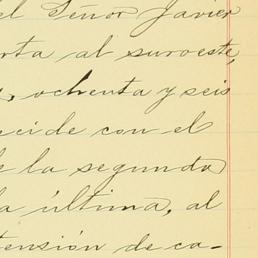 el Señor Javier
rta al suroeste,
, ochenta y seis
cide con el
e la segunda
a última, al
tensión de ca-